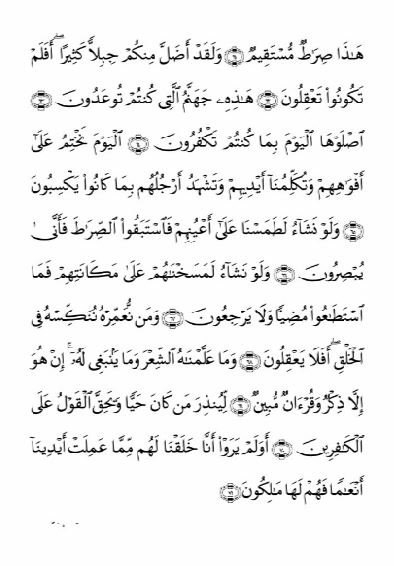 هَـٰذَا صِرَٰطٌ مُّسْتَقِيمٌ ۝٦١ وَلَقَدْ أَضَلَّ مِنكُمْ جِبِلًّا كَثِيرًا ۖ أَفَلَمْ
تَكُونُوا۟ تَعْقِلُونَ ۝٦٢ هَـٰذِهِۦ جَهَنَّمُ ٱلَّتِى كُنتُمْ تُوعَدُونَ ۝٦٣
ٱصْلَوْهَا ٱلْيَوْمَ بِمَا كُنتُمْ تَكْفُرُونَ ۝٦٤ ٱلْيَوْمَ نَخْتِمُ عَلَىٰٓ
أَفْوَٰهِهِمْ وَتُكَلِّمُنَآ أَيْدِيهِمْ وَتَشْهَدُ أَرْجُلُهُم بِمَا كَانُوا۟ يَكْسِبُونَ
۝٦٥ وَلَوْ نَشَآءُ لَطَمَسْنَا عَلَىٰٓ أَعْيُنِهِمْ فَٱسْتَبَقُوا۟ ٱلصِّرَٰطَ فَأَنَّىٰ
يُبْصِرُونَ ۝٦٦ وَلَوْ نَشَآءُ لَمَسَخْنَـٰهُمْ عَلَىٰ مَكَانَتِهِمْ فَمَا
ٱسْتَطَـٰعُوا۟ مُضِيًّا وَلَا يَرْجِعُونَ ۝٦٧ وَمَن نُّعَمِّرْهُ نُنَكِّسْهُ فِى
ٱلْخَلْقِ ۖ أَفَلَا يَعْقِلُونَ ۝٦٨ وَمَا عَلَّمْنَـٰهُ ٱلشِّعْرَ وَمَا يَنۢبَغِى لَهُۥٓ ۚ إِنْ هُوَ
إِلَّا ذِكْرٌ وَقُرْءَانٌ مُّبِينٌ ۝٦٩ لِّيُنذِرَ مَن كَانَ حَيًّا وَيَحِقَّ ٱلْقَوْلُ عَلَى
ٱلْكَـٰفِرِينَ ۝٧٠ أَوَلَمْ يَرَوْا۟ أَنَّا خَلَقْنَا لَهُم مِّمَّا عَمِلَتْ أَيْدِينَآ
أَنْعَـٰمًا فَهُمْ لَهَا مَـٰلِكُونَ ۝٧١